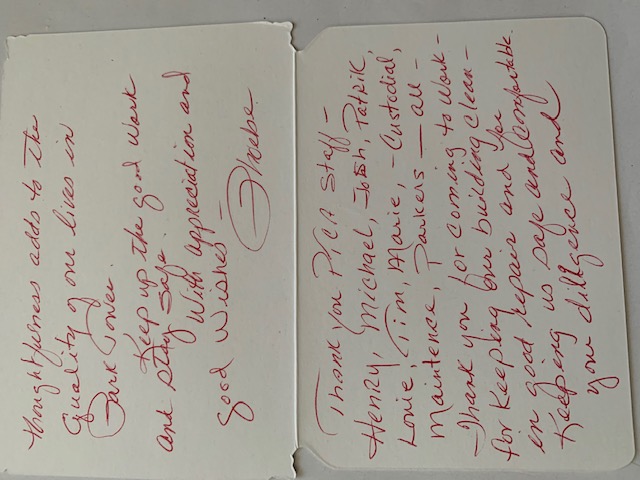 Thank you PTCA Staff -
Henry, Michael, Josh, Patrik,
Louie, Tim, Marie, - Custodial,
Maintence, Parkers - all -
Thank you for coming to work -
for Keeping our building clean -
in good repair and for
Keeping us safe and Comfortable.
your diligence and
thoughtfulness adds to the
Quality of our lives in
Park Tower.
Keep up the good work
and stay safe.
With appreciation and
good wishes -
Phoebe